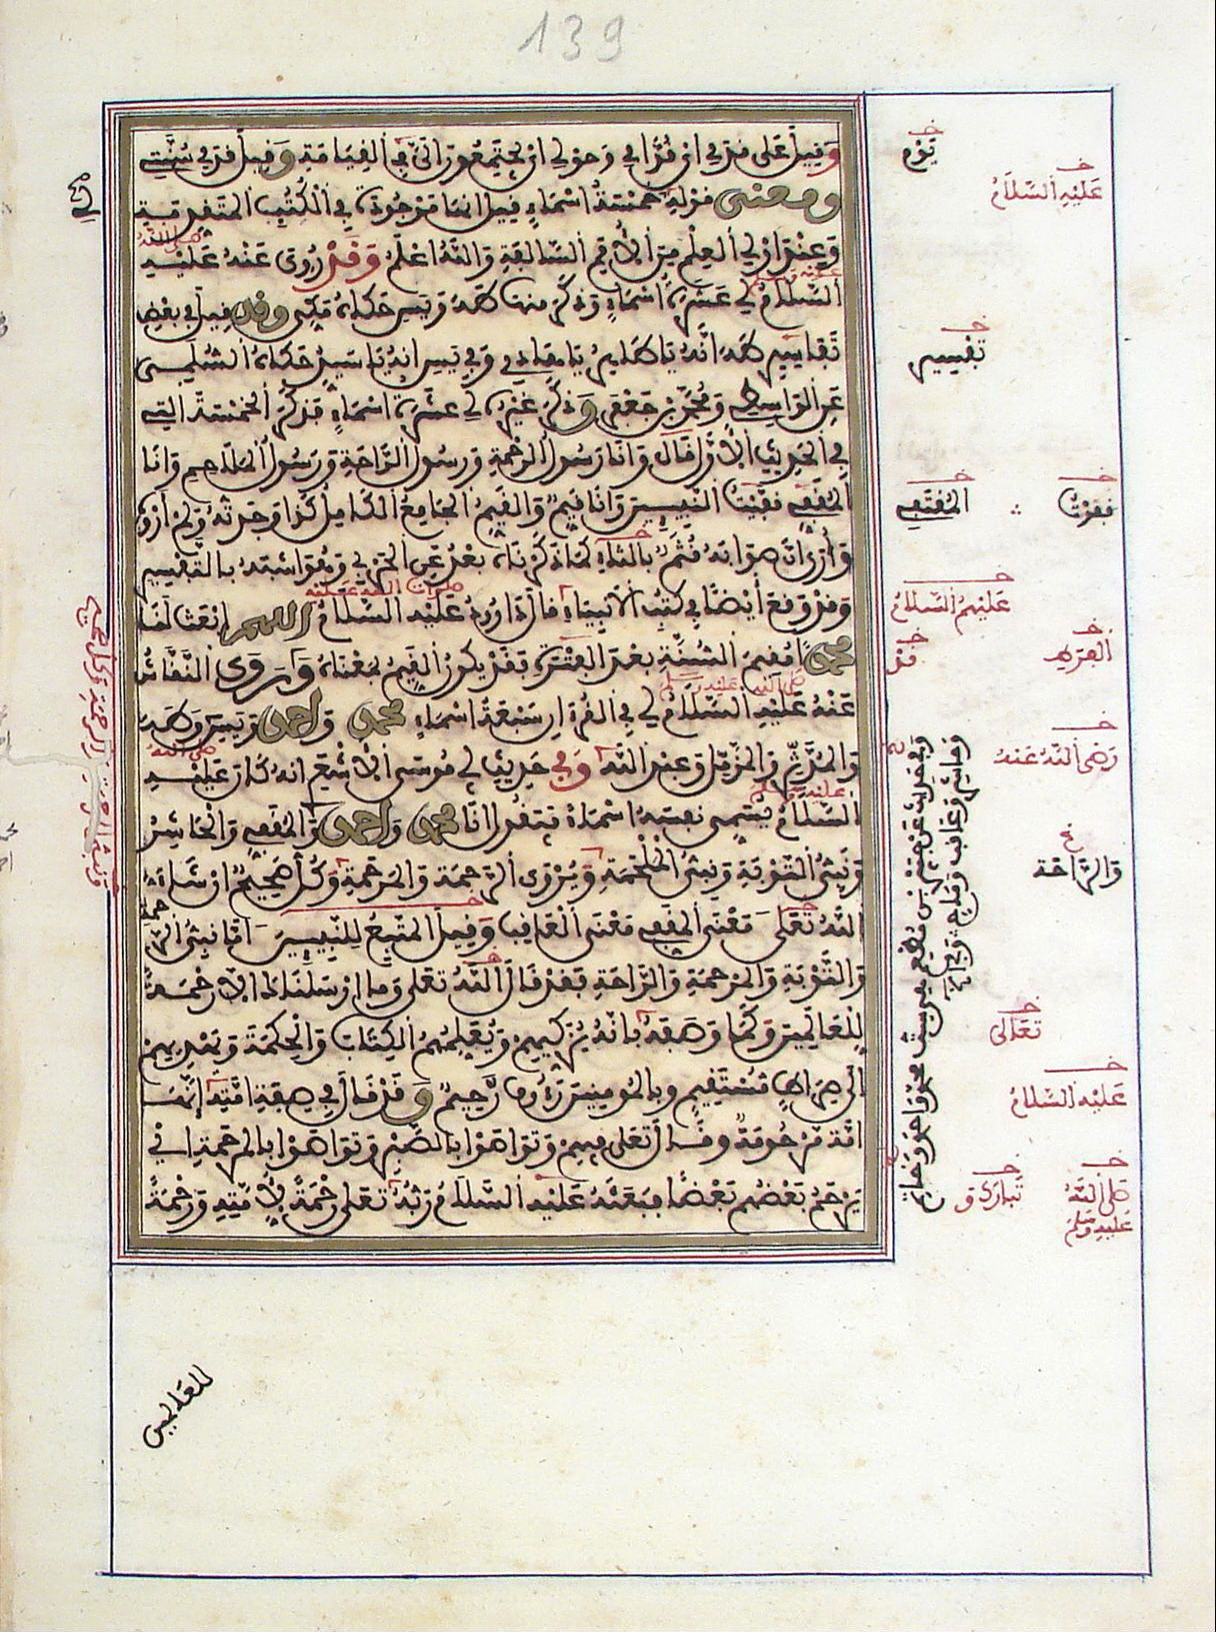 139
وَقِيلَ عَلَى قدمي اي قُدَّامِي وحولي اي يجتمعون إليَّ في القِيَامَةِ وَقيل قدمي سُنَّتِي
ومعنى قوله خمسةُ اسْمَاءٍ قيل انها مَوْجُودَة فِي الْكُتُبِ المتَقَدِّمَةِ
وَعِنْدَ أولي العِلْمِ مِنَ الأُمَمِ السَّالِفَةِ وَاللَّهُ اعْلَمُ وَقَدْ رُوِيَ عَنْهُ عَلَيْهِ
السَّلَامُ لي عَشَرَةُ اسْمَاءٍ وَذَكَرَ منها طه وَيس حَكَاهُ مَكِّي وقد قيل في بعْضِ
تَفَاسِيرِ طه أنَّهُ يَا طَاهِرُ يَا هَادِي وَفِي يس انه يَا سَيِّدُ حَكَاهُ السُّلَمِي
عَنِ الوَاسِطِي وَمُحَمَّدِ بْنِ جَعْفَرٍ وَذَكَرَ غَيْرُهُ لِي عَشَرَةُ اسْمَاءٍ فَذَكَرَ الخَمْسَةَ التِي
فِي الحَدِيثِ الأَوَّلِ قَالَ وَانَا رَسُولُ الرَّحْمَةِ وَرَسُولُ الرَّاحَةِ وَرَسُولُ المَلَاحِمِ وَانَا
المُقَفِّي قَفَّيْتُ النَّبِيِّينَ وَانَا قَيِّمٌ وَالقَيِّمُ الجَامِعُ الكَامِل كَذَا وَجَدْتُهُ وَلَمْ أَرْوِهِ
وَأُرَى انَّ صَوَابَهُ قُثَمٌ بِالثَّاءِ كَمَا ذَكَرْنَاهُ بَعْدُ عَنِ الحَرْبِي وَهُوَ اشْبَهُ بِالتَّفْسِيرِ
وَقَدْ وَقَعَ أيْضًا فِي كُتُبِ الأَنْبِيَاءِ قَالَ دَاوُدُ عَلَيْهِ السَّلَامُ اللهم ابْعَثْ لَنَا
محمدا مُقِيمَ السُّنَّةِ بَعْدَ الفَتْرَةِ فَقَدْ يَكُونُ القَيِّمُ بِمَعْنَاهُ وَرَوَى النَّقَّاشُ
عَنْهُ عَلَيْهِ السَّلَامُ لِي فِي القُرْءَانِ سَبْعَةُ اسْمَاءٍ محمد وَاحمد وَيس وَطه
وَالمُدَّثِّرُ وَالمُزَّمِّلُ وَعَبْدُ اللَّهِ وَفِي حَدِيثٍ لِي مُوسَى الأَشْعَرِي انه كَانَ عَلَيْهِ
السَّلَامُ يُسَمِّي نَفْسَهُ اسْمَاءً فَيَقُولُ انَا محمد وَاحمد وَالمُقَفِّي وَالحَاشِرُ
وَنَبِيُّ التَّوْبَةِ وَنَبِيُّ المَلْحَمَةِ وَيُرْوَى الرَّحْمَةِ وَالمَرْحَمَةِ وَكُلٌّ صَحِيحٌ انْ شَاءَ
اللَّهُ تَعَلَى وَمَعْنَى المُقَفِّي مَعْنَى العَاقِبِ وَقِيلَ المُتَّبِعُ لِلنَّبِيِّينَ وَامَّا نَبِيُّ الرَّحْمَةِ
وَالتَّوْبَةِ وَالمَرْحَمَةِ وَالرَّاحَةِ فَقَدْ قَالَ اللَّهُ تَعَلَى وَمَا ارْسَلْنَاكَ الاَّ رَحْمَةً
لِلْعَالَمِينَ وَكَمَا وَصَفَهُ بِانَّهُ يُزَكِّيهِمْ وَيُعَلِّمُهُمُ الكِتَابَ وَالْحِكْمَةَ وَيَهْدِيهِمْ
الَى صِرَاطٍ مُسْتَقِيمٍ وبالمُومِنِينَ رَؤُوفٌ رَّحِيمٌ وَقَدْ قَالَ فِي صِفَةِ امَّتِهِ إنَّهَا
امَّةٌ مَرْحُومَةٌ وقَالَ تَعَلَى فِيهِمْ وَتَوَاصَوْا بِالصَّبْرِ وَتَوَاصَوْا بِالمَرْحَمَةِ ايْ
يَرْحَمُ بَعْضُهُم بَعْضًا فَبَعَثَهُ عَلَيْهِ السَّلَامُ رَبُّهُ تَعَلَى رَحْمَةً لِأُمَّتِهِ وَرَحْمَةً
للعالمين
يَوْمَ
عَلَيْهِ السَّلَامُ
تَفْسِيرِ
المُقْتَفِي
فَقَفَوْتُ
عَلَيْهِمُ السَّلَامُ
قَدْ
رَضِيَ اللَّهُ عَنْهُ
وَالرَّاحَة
تَعَالَى
عَلَيْهِ السَّلَامُ
تَبَارَكَ وَ
صَلَّى اللَّهُ
عَلَيْهِ وَسَلَّمَ
وَفِي حَدِيثٍ عَنْ جُبَيْرِ بْنِ مُطْعِمٍ هِيَ سِتٌّ محمد وَاحمد وَخَاتِمٌ
وَحَاشِرٌ وَعَاقِبٌ وَمَاحٍ